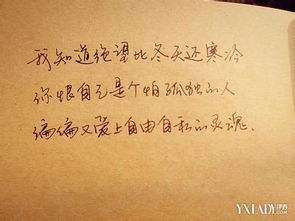 我知道绝望比冬天还寒冷
你恨自己是个怕孤独的人
偏偏又爱上自由自私的灵魂.
YXLADY.COM